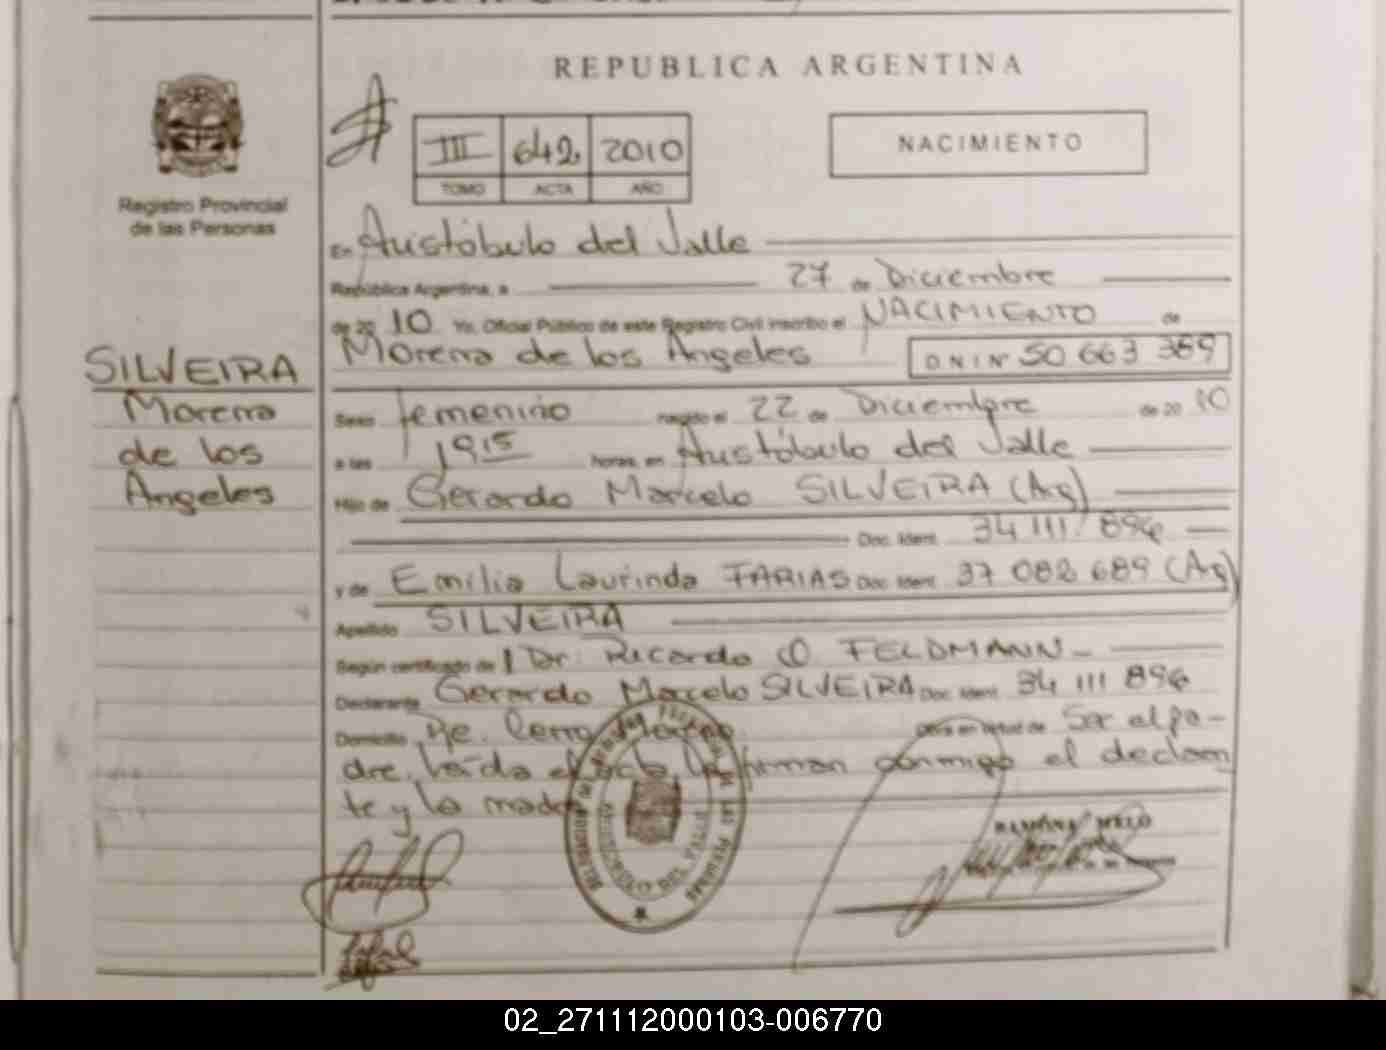 REPUBLICA ARGENTINA
III 642 2010
TOMO ACTA AÑO
NACIMIENTO
Registro Provincial
de las Personas
SILVEIRA
Morena
de los
Angeles
En Aristóbulo del Valle
República Argentina, a 27 de Diciembre
de 20 10 Yo, Oficial Público de este Registro Civil inscribo el NACIMIENTO de
Morena de los Angeles D N I Nº 50 663 389
Sexo femenino nacido el 22 de Diciembre de 20 10
a las 19 15 horas, en Aristóbulo del Valle
Hijo de Gerardo Marcelo SILVEIRA (Arg)
Doc. Ident. 34 111 896
y de Emilia Laurinda FARIAS Doc. Ident. 37 082 689 (Arg)
Apellido SILVEIRA
Según certificado de Dr. Ricardo O FELDMANN
Declarante Gerardo Marcelo SILVEIRA Doc. Ident. 34 111 896
Domicilio Cerro Obra en virtud de Ser el pa-
dre. Leída el acta, la firman conmigo el declaran
te y la madre
RAMONA MELO
02_271112000103-006770